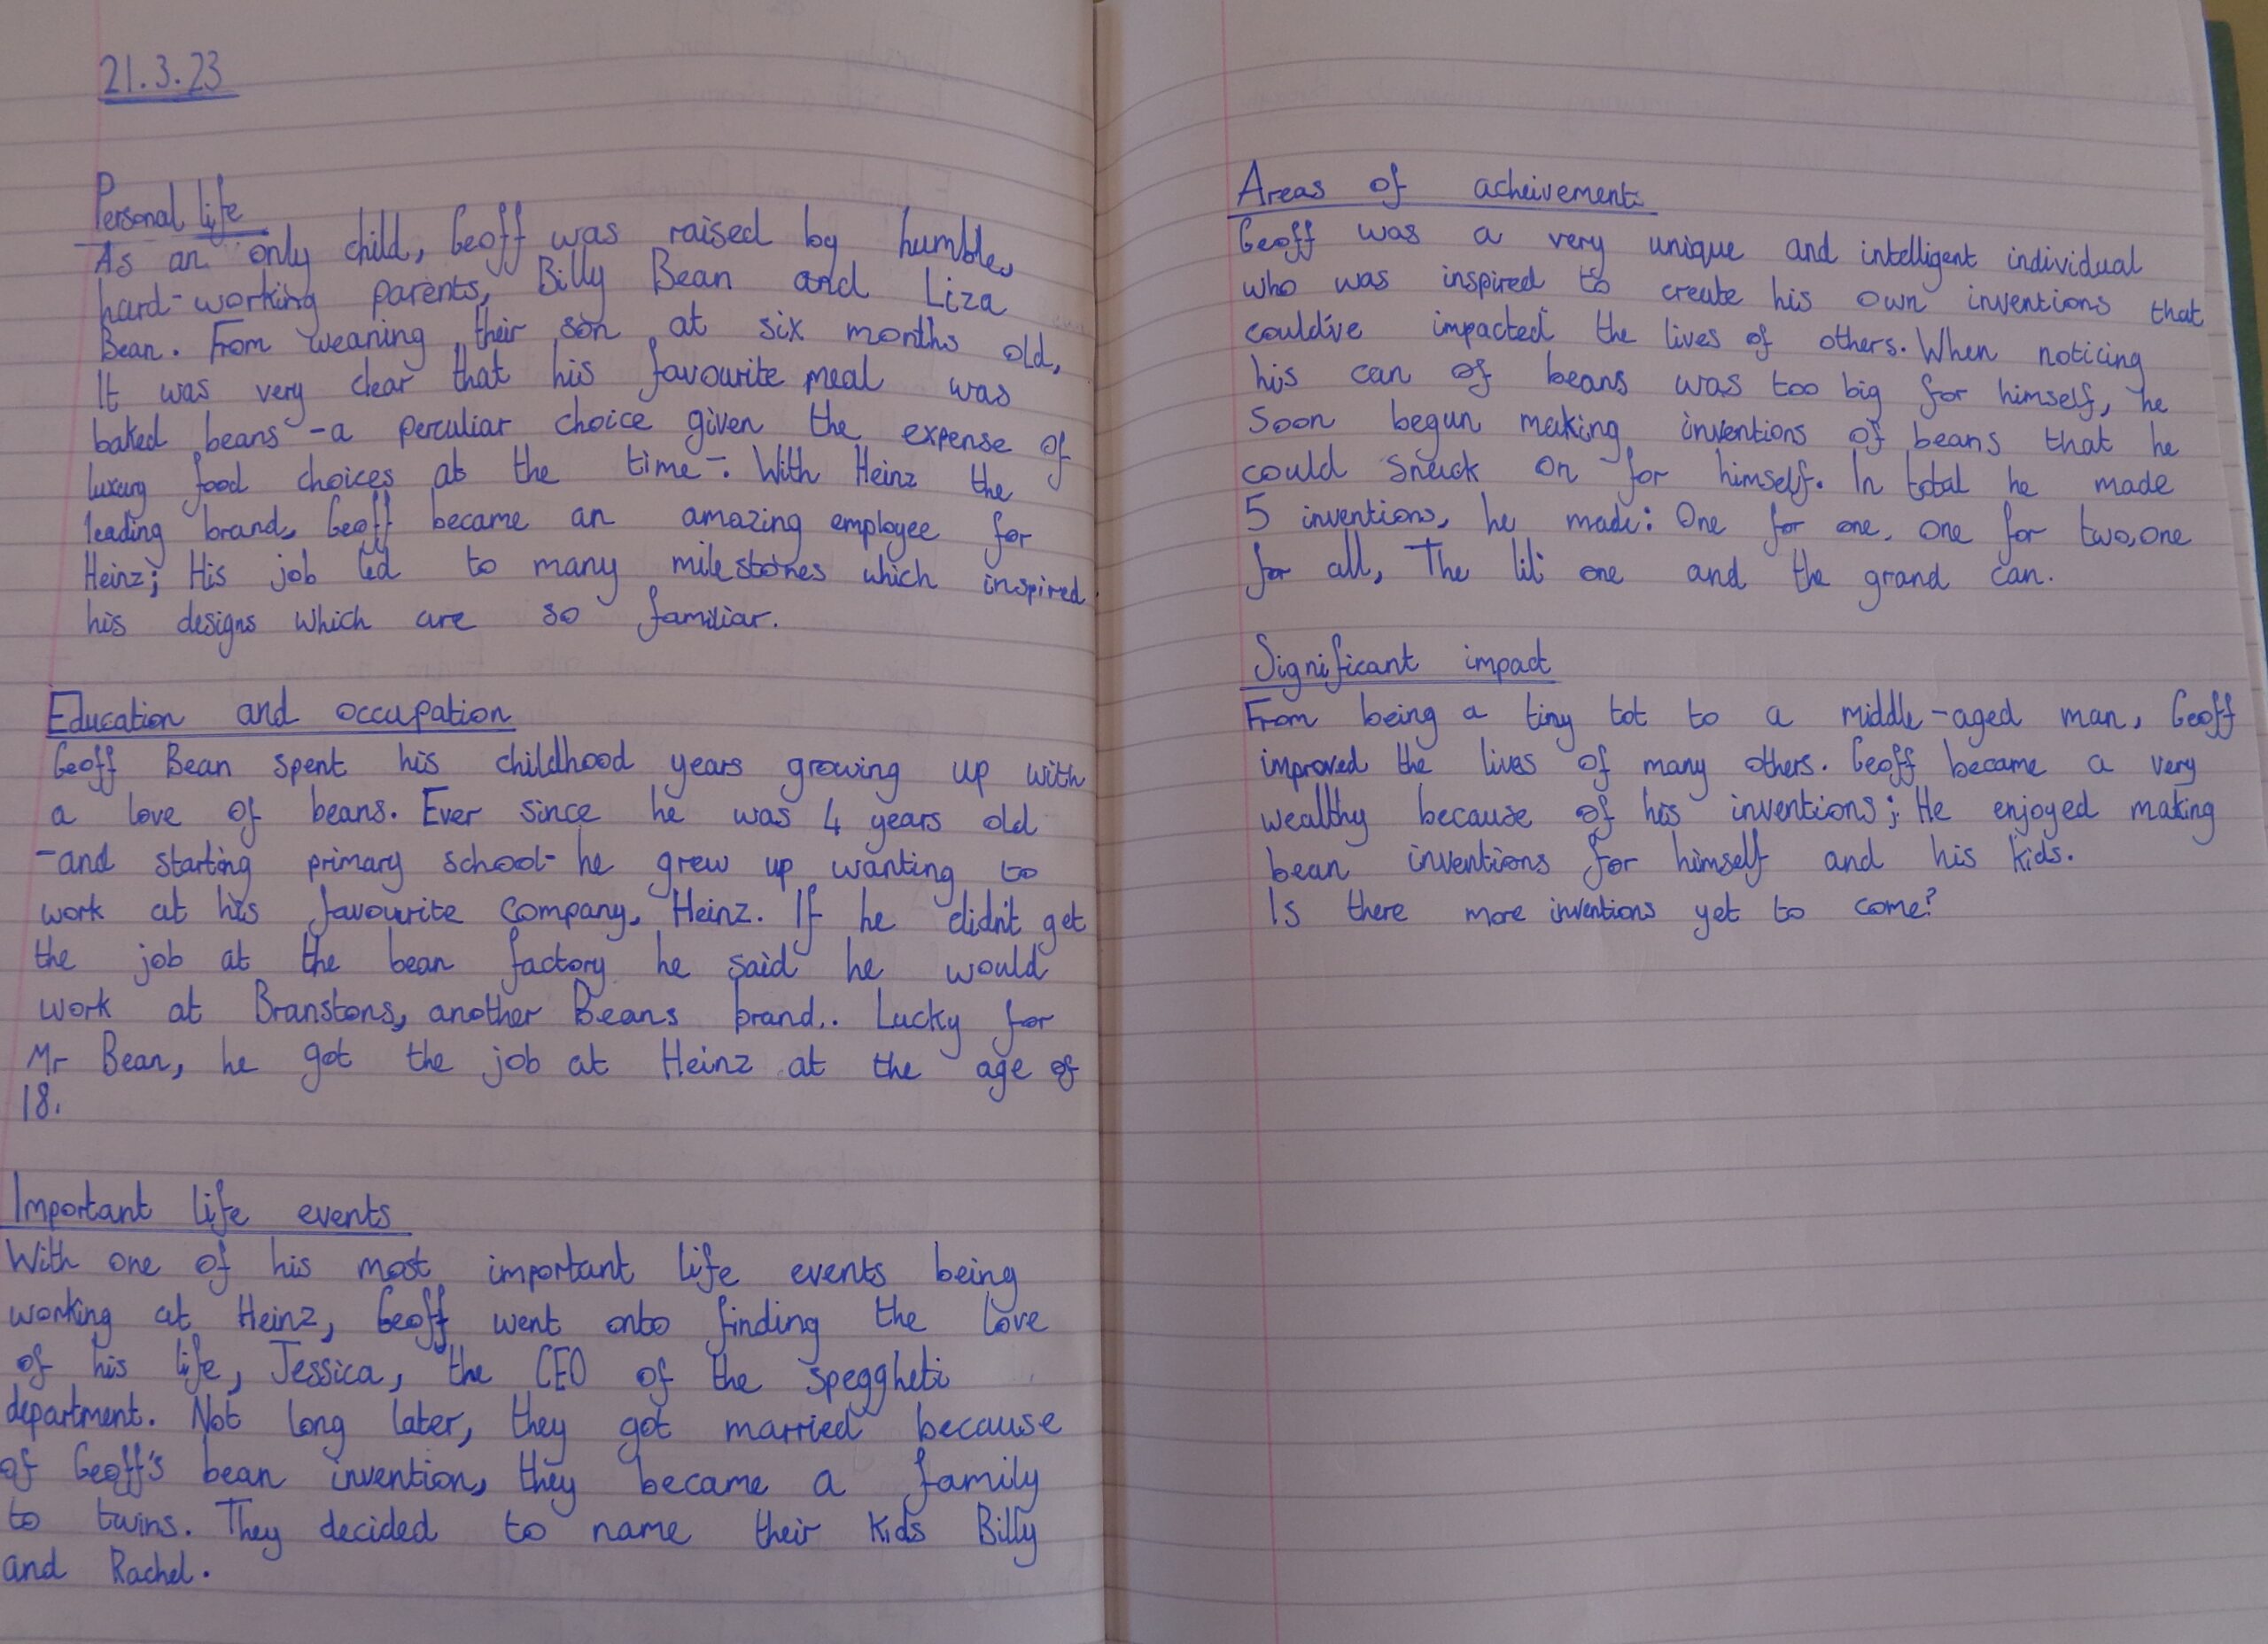 21.3.23
Personal life
As an only child, Geoff was raised by humble,
hard-working parents, Billy Bean and Liza
Bean. From weaning their son at six months old,
It was very clear that his favourite meal was
baked beans -a perculiar choice given the expense of
luxury food choices at the time-. With Heinz the
leading brand, Geoff became an amazing employee for
Heinz; His job led to many milestones which inspired
his designs which are so familiar.
Education and occupation
Geoff Bean spent his childhood years growing up with
a love of beans. Ever since he was 4 years old
-and starting primary school- he grew up wanting to
work at his favourite company, Heinz. If he didn't get
the job at the bean factory he said he would
work at Branstons, another Beans brand.. Lucky for
Mr Bean, he got the job at Heinz at the age of
18.
Important life events
With one of his most important life events being
working at Heinz, Geoff went onto finding the love
of his life, Jessica, the CEO of the speggheti
department. Not long later, they got married because
of Geoff's bean invention, they became a family
to twins. They decided to name their kids Billy
and Rachel.
Areas of acheivement
Geoff was a very unique and intelligent individual
who was inspired to create his own inventions that
could've impacted the lives of others. When noticing
his can of beans was too big for himself, he
soon begun making inventions of beans that he
could snack on for himself. In total he made
5 inventions, he made: One for one, one for two, one
for all, The lil' one and the grand can.
Significant impact
From being a tiny tot to a middle-aged man, Geoff
improved the lives of many others. Geoff became a very
wealthy because of his inventions; He enjoyed making
bean inventions for himself and his kids.
Is there more inventions yet to come?